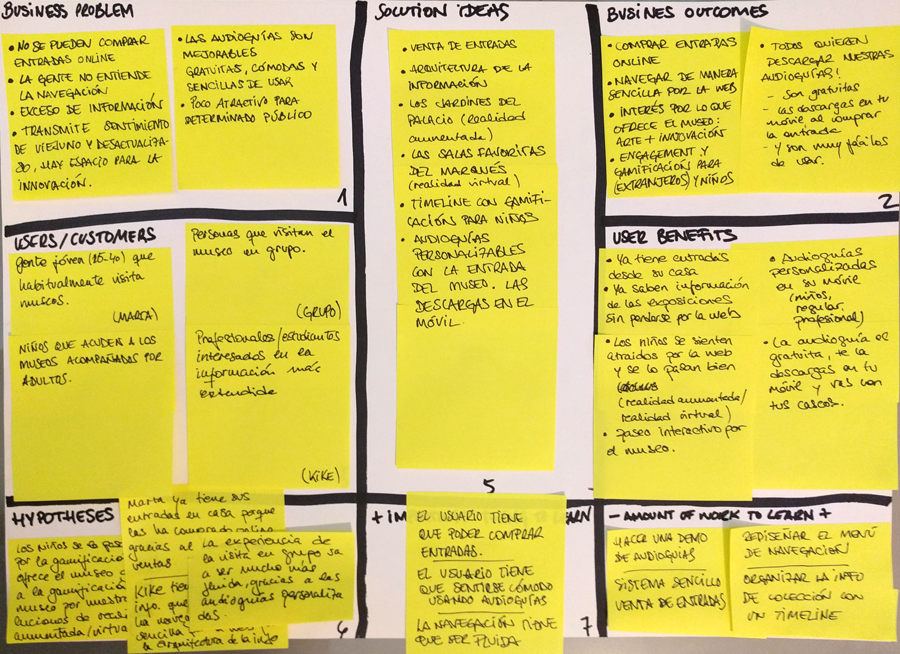 BUSINESS PROBLEM
• NO SE PUEDEN COMPRAR
ENTRADAS ONLINE
• LA GENTE NO ENTIENDE
LA NAVEGACIÓN
• EXCESO DE INFORMACIÓN
• TRANSMITE SENTIMIENTO
DE VIEJUNO Y DESACTUALIZA-
DO, HAY ESPACIO PARA LA
INNOVACIÓN.
• LAS AUDIOGUÍAS SON
MEJORABLES
GRATUITAS, CÓMODAS Y
SENCILLAS DE USAR
• POCO ATRACTIVO PARA
DETERMINADO PÚBLICO
1
SOLUTION IDEAS
• VENTA DE ENTRADAS
• ARQUITECTURA DE LA
INFORMACIÓN
• LOS JARDINES DEL
PALACIO (realidad
aumentada)
• LAS SALAS FAVORITAS
DEL MARQUÉS
(realidad virtual)
• TIMELINE CON GAMIFI-
CACIÓN PARA NIÑOS
• AUDIOGUÍAS
PERSONALIZABLES
CON LA ENTRADA
DEL MUSEO. LAS
DESCARGAS EN EL
MÓVIL.
5
BUSINES OUTCOMES
• COMPRAR ENTRADAS
ONLINE
• NAVEGAR DE MANERA
SENCILLA POR LA WEB
• INTERÉS POR LO QUE
OFRECE EL MUSEO:
ARTE + INNOVACIÓN
• ENGAGEMENT Y
GAMIFICACIÓN PARA
(EXTRANJEROS) Y NIÑOS
• TODOS QUIEREN
DESCARGAR NUESTRAS
AUDIOGUÍAS!
- son gratuitas
- las descargas en tu
móvil al comprar
la entrada
- y son muy fáciles
de usar.
2
USERS/CUSTOMERS
Gente jóven (25-40) que
habitualmente visita
museos.
(MARTA)
Personas que visitan el
museo en grupo.
(GRUPO)
NIÑOS QUE ACUDEN A LOS
MUSEOS ACOMPAÑADOS POR
ADULTOS.
Profesionales/estudiantes
interesados en la
información más
extendida
(KIKE)
USER BENEFITS
• Ya tiene entradas
desde su casa
• Ya saben información
de las exposiciones
sin perderse por la web
• Audioguías
personalizadas
en su móvil
(niños,
regular,
profesional)
• Los niños se sienten
atraídos por la web
y se lo pasan bien
(realidad aumentada/
realidad virtual)
• Paseo interactivo por
el museo.
• La audioguía es
gratuita, te la
descargas en tu
móvil y vas con
tus cascos.
HYPOTHESES
Los niños se lo pasa
por la gamificació
ofrece el museo
a la gamificació
museo por nuestra
luciones de
aumentada/virtua
Marta ya tiene sus
entradas en casa porque
las ha comprado online
gracias al
ventas
KIKE tien
info. que
la naveg
sencilla
la arquitectura de la info
La experiencia de
la visita en grupo va
a ser mucho más
fluida, gracias a las
audioguías personaliza
das.
6
+ IM LEARN
EL USUARIO TIENE
QUE PODER COMPRAR
ENTRADAS.
EL USUARIO TIENE
QUE SENTIRSE CÓMODO
USANDO AUDIOGUÍAS
LA NAVEGACIÓN TIENE
QUE SER FLUIDA
7
- AMOUNT OF WORK TO LEARN +
HACER UNA DEMO
DE AUDIOGUÍAS
SISTEMA SENCILLO
VENTA DE ENTRADAS
REDISEÑAR EL MENÚ
DE NAVEGACIÓN
ORGANIZAR LA INFO
DE COLECCIÓN CON
UN TIMELINE